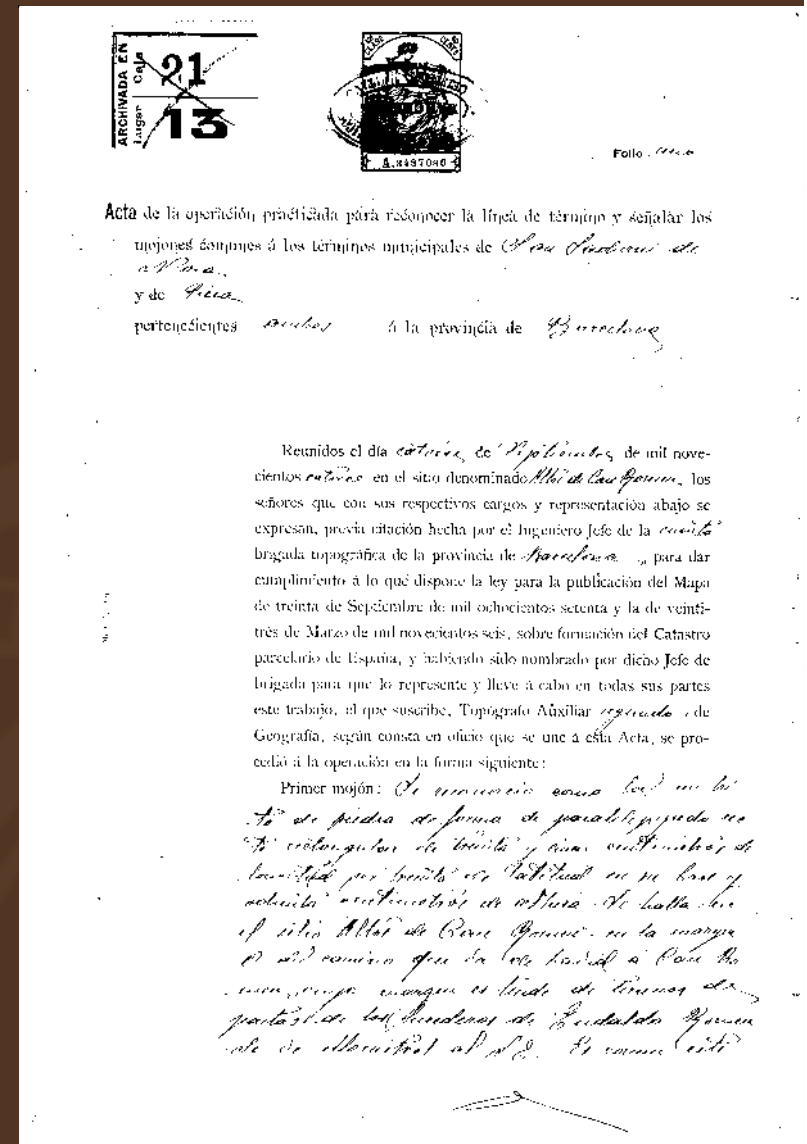 ARCHIVADA EN
Lugar Caja
21
13
A.8497080
Folio
Acta de la operación practicada para reconocer la línea de término y señalar los
mojones comunes á los términos municipales de San Sadurní de
Noya
y de Piera
pertenecientes ambos á la provincia de Barcelona
Reunidos el día catorce de Septiembre de mil nove-
cientos catorce en el sitio denominado Altos de Can Romeu, los
señores que con sus respectivos cargos y representación abajo se
expresan, previa citación hecha por el Ingeniero Jefe de la cuarta
brigada topográfica de la provincia de Barcelona, para dar
cumplimiento á lo que dispone la ley para la publicación del Mapa
de treinta de Septiembre de mil ochocientos setenta y la de veinti-
trés de Marzo de mil novecientos seis, sobre formación del Catastro
parcelario de España, y habiendo sido nombrado por dicho Jefe de
brigada para que lo represente y lleve á cabo en todas sus partes
este trabajo, el que suscribe, Topógrafo Auxiliar segundo de
Geografía, según consta en oficio que se une á esta Acta, se pro-
cedió á la operación en la forma siguiente:
Primer mojón: Se reconoció como tal un hi
to de piedra de forma de paralelepípedo rec
to rectangular de treinta y cinco centímetros de
longitud por treinta de latitud en su base y
ochenta centímetros de altura. Se halla en
el sitio Altos de Can Romeu en la margen
del camino que va de á Can Ro
meu, cuya margen es linde de terrenos de
pastos de los herederos de Eudaldo Romeu
de Monistrol al S.E. Es comun este